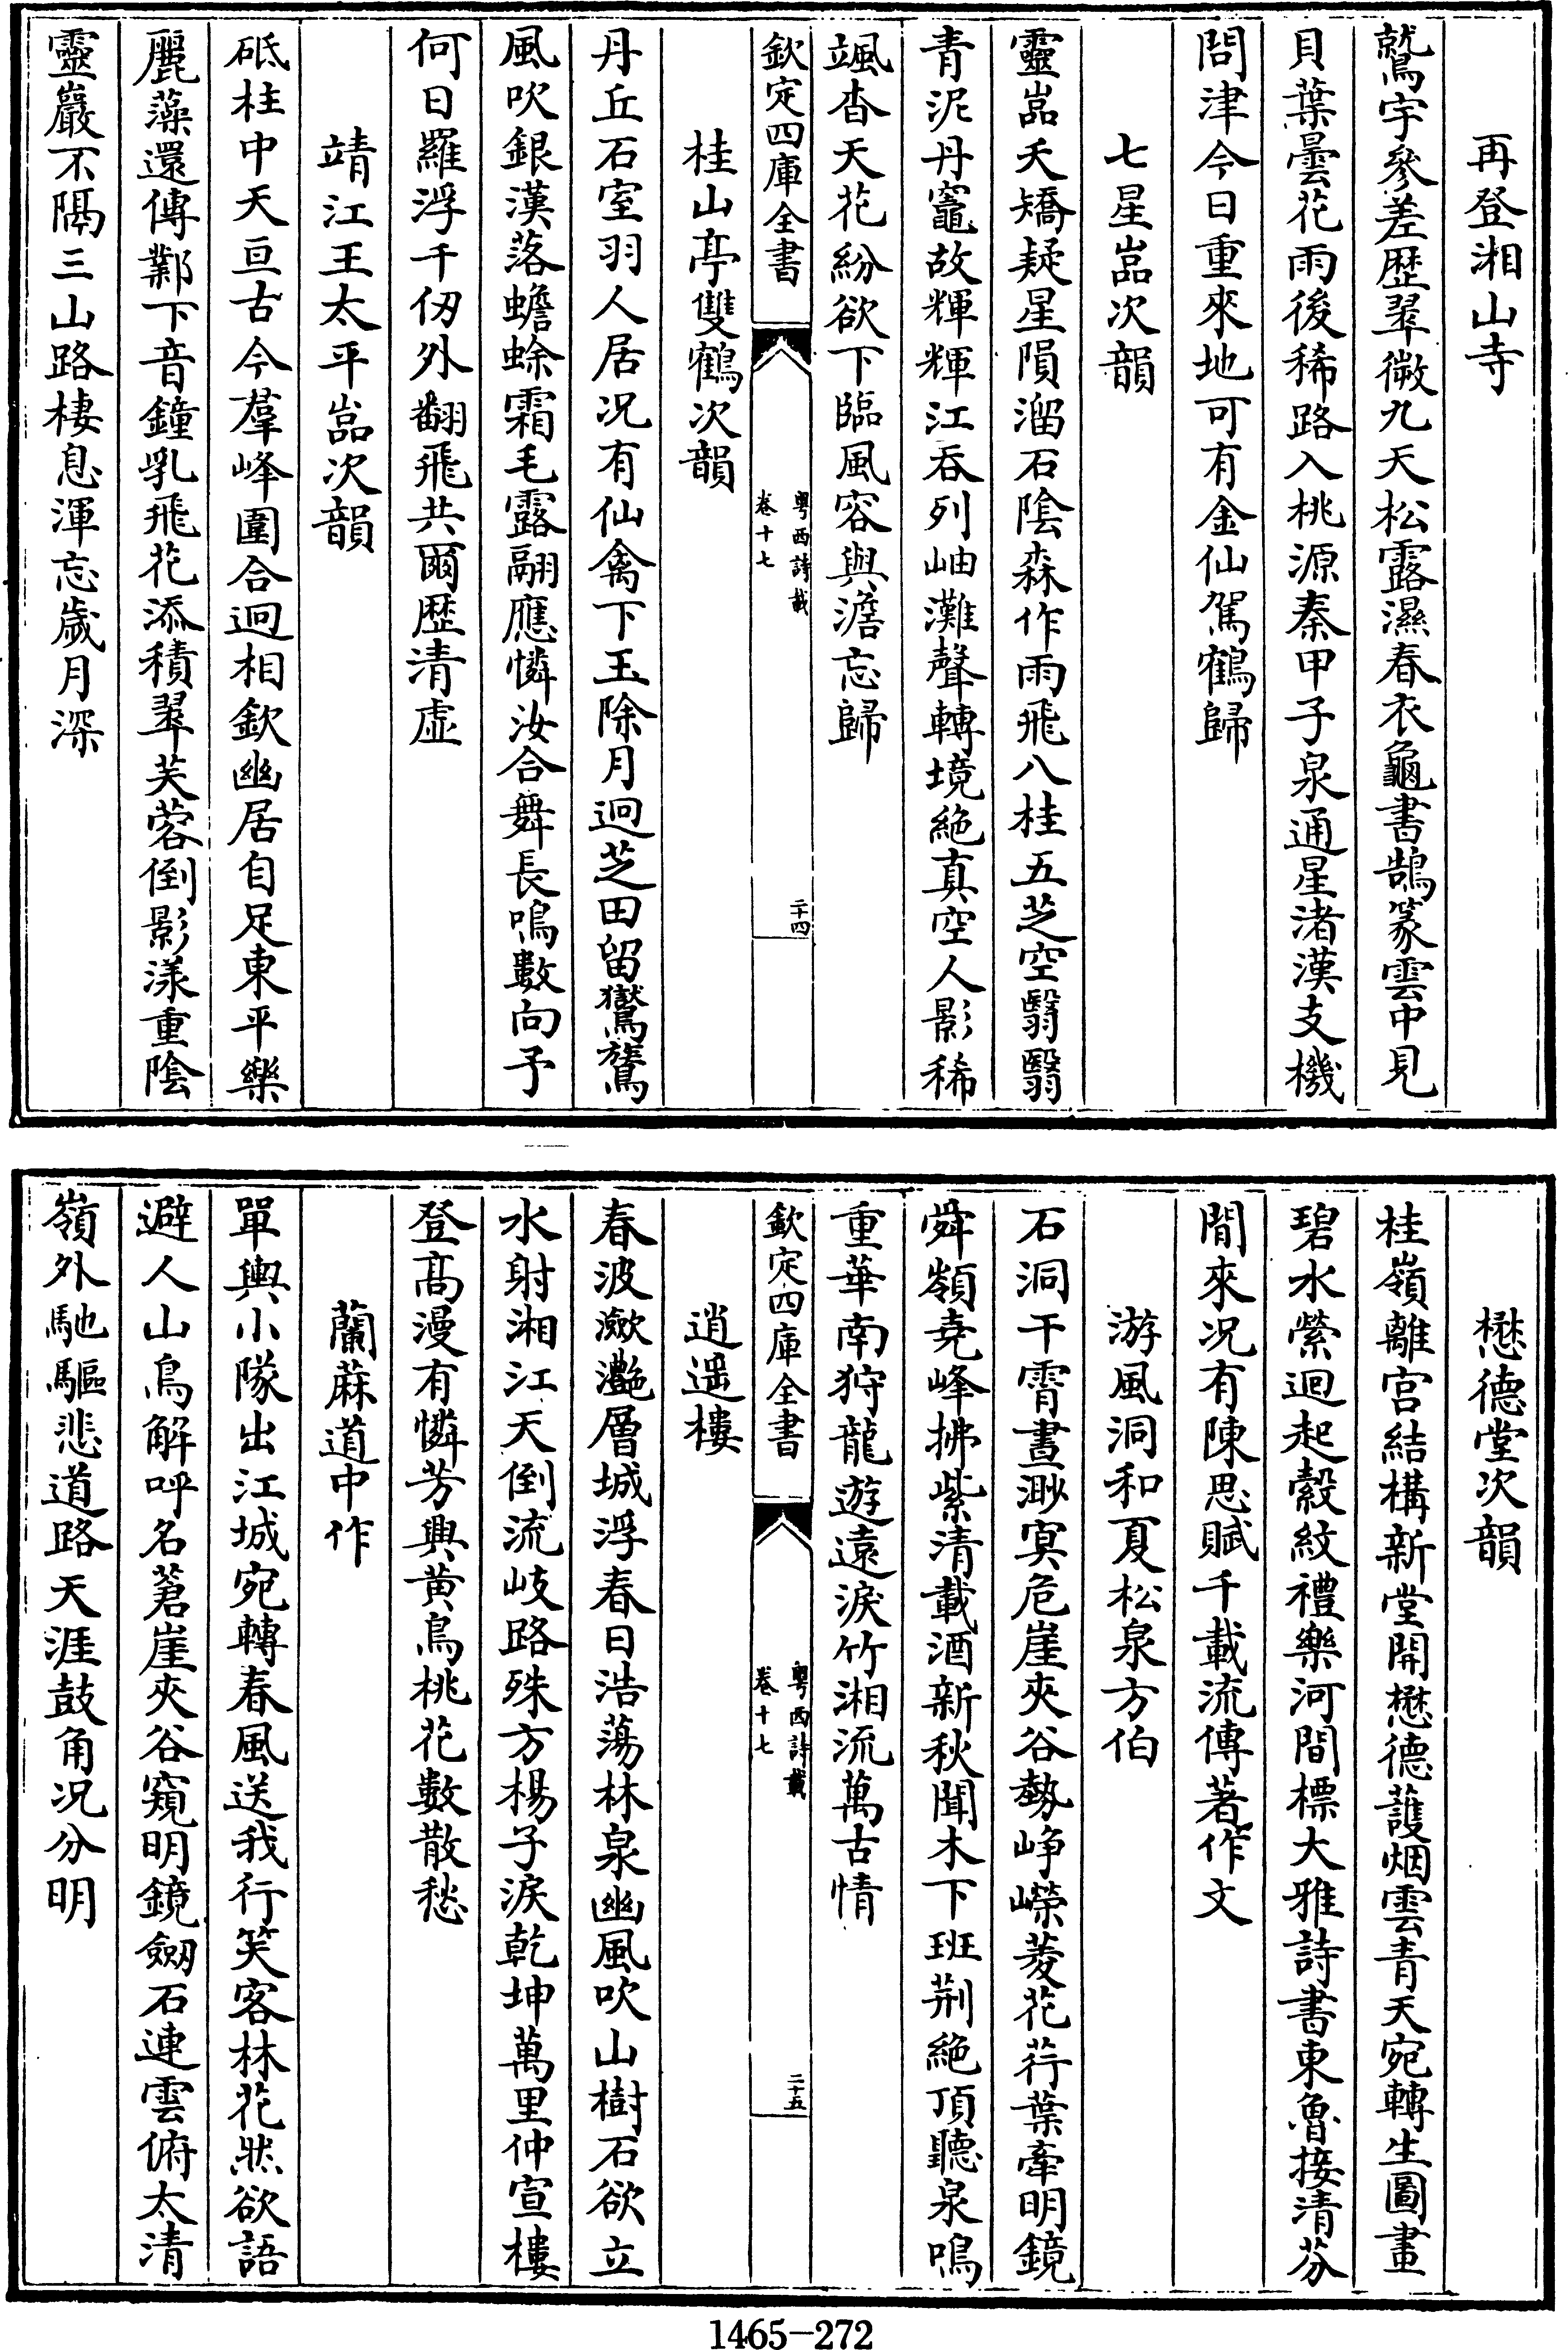 再登湘山寺
鷲宇參差歴翠微九天松露濕春衣龜書鵠篆雲中見
貝葉曇花雨後稀路入桃源秦甲子泉通星渚漢支機
問津今日重來地可有金仙駕鶴歸
七星嵓次韻
靈嵓夭矯疑星隕溜石陰森作雨飛八桂五芝空翳翳
青泥丹竈故輝輝江吞列岫灘聲轉境絶真空人影稀
颯杳天花紛欲下臨風容與澹忘歸
欽定四庫全書
粤西詩載
卷十七
二十四
桂山亭雙鶴次韻
丹丘石室羽人居况有仙禽下玉除月迥芝田留鸑鷟
風吹銀漢落蟾蜍霜毛露翮應憐汝合舞長鳴數向予
何日羅浮千仞外翻飛共爾歴清虚
靖江王太平嵓次韻
砥柱中天亘古今羣峰圍合迥相欽幽居自足東平樂
麗藻還傳鄴下音鐘乳飛花添積翠芙蓉倒影漾重陰
靈巖不隔三山路棲息渾忘歲月深
懋德堂次韻
桂嶺離宫結構新堂開懋德護烟雲青天宛轉生圖畫
碧水縈迴起縠紋禮樂河間標大雅詩書東魯接清芬
間來况有陳思賦千載流傳著作文
游風洞和夏松泉方伯
石洞干霄晝渺寞危崖夾谷勢崢嶸菱花荇葉牽明鏡
舜嶺堯峰拂紫清載酒新秋聞木下班荆絶頂聽泉鳴
重華南狩龍遊遠淚竹湘流萬古情
欽定四庫全書
粤西詩載
卷十七
二十五
逍遥樓
春波瀲灩層城浮春日浩蕩林泉幽風吹山樹石欲立
水射湘江天倒流岐路殊方楊子淚乾坤萬里仲宣樓
登高漫有憐芳興黄鳥桃花數散愁
蘭蔴道中作
單輿小隊出江城宛轉春風送我行笑客林花然欲語
避人山鳥解呼名蒼崖夾谷窺明鏡劒石連雲俯太清
嶺外馳驅悲道路天涯鼓角况分明
1465-272